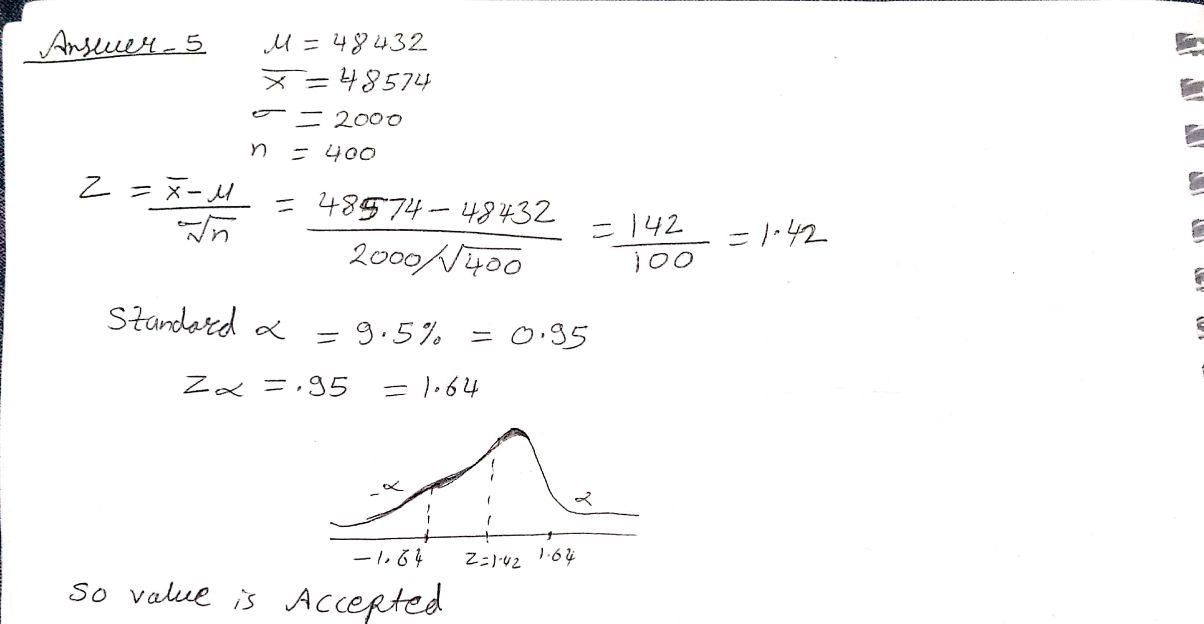 Answer-5 μ = 48432
x̄ = 48574
σ = 2000
n = 400
Z = x̄-μ / σ/√n = 48574-48432 / 2000/√400 = 142 / 100 = 1.42
Standard α = 9.5% = 0.95
Zα = .95 = 1.64
-α α
-1.64 Z=1.42 1.64
So value is Accepted